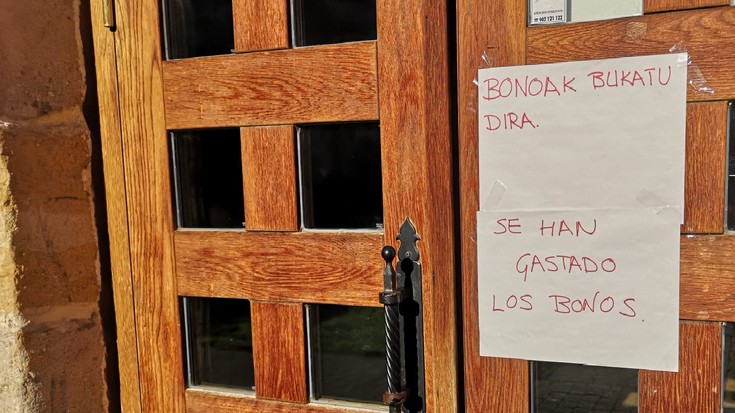 902 121 122
BONOAK BUKATU
DIRA.
SE HAN
GASTADO
LOS BONOS.